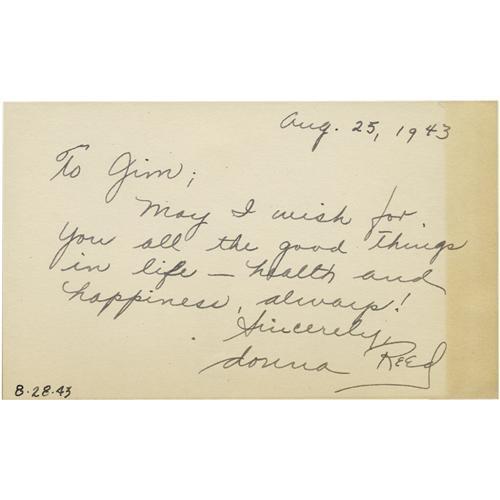 Aug. 25, 1943
To Jim;
May I wish for
you all the good things
in life – health and
happiness, always!
Sincerely,
donna Reed
8.28.43